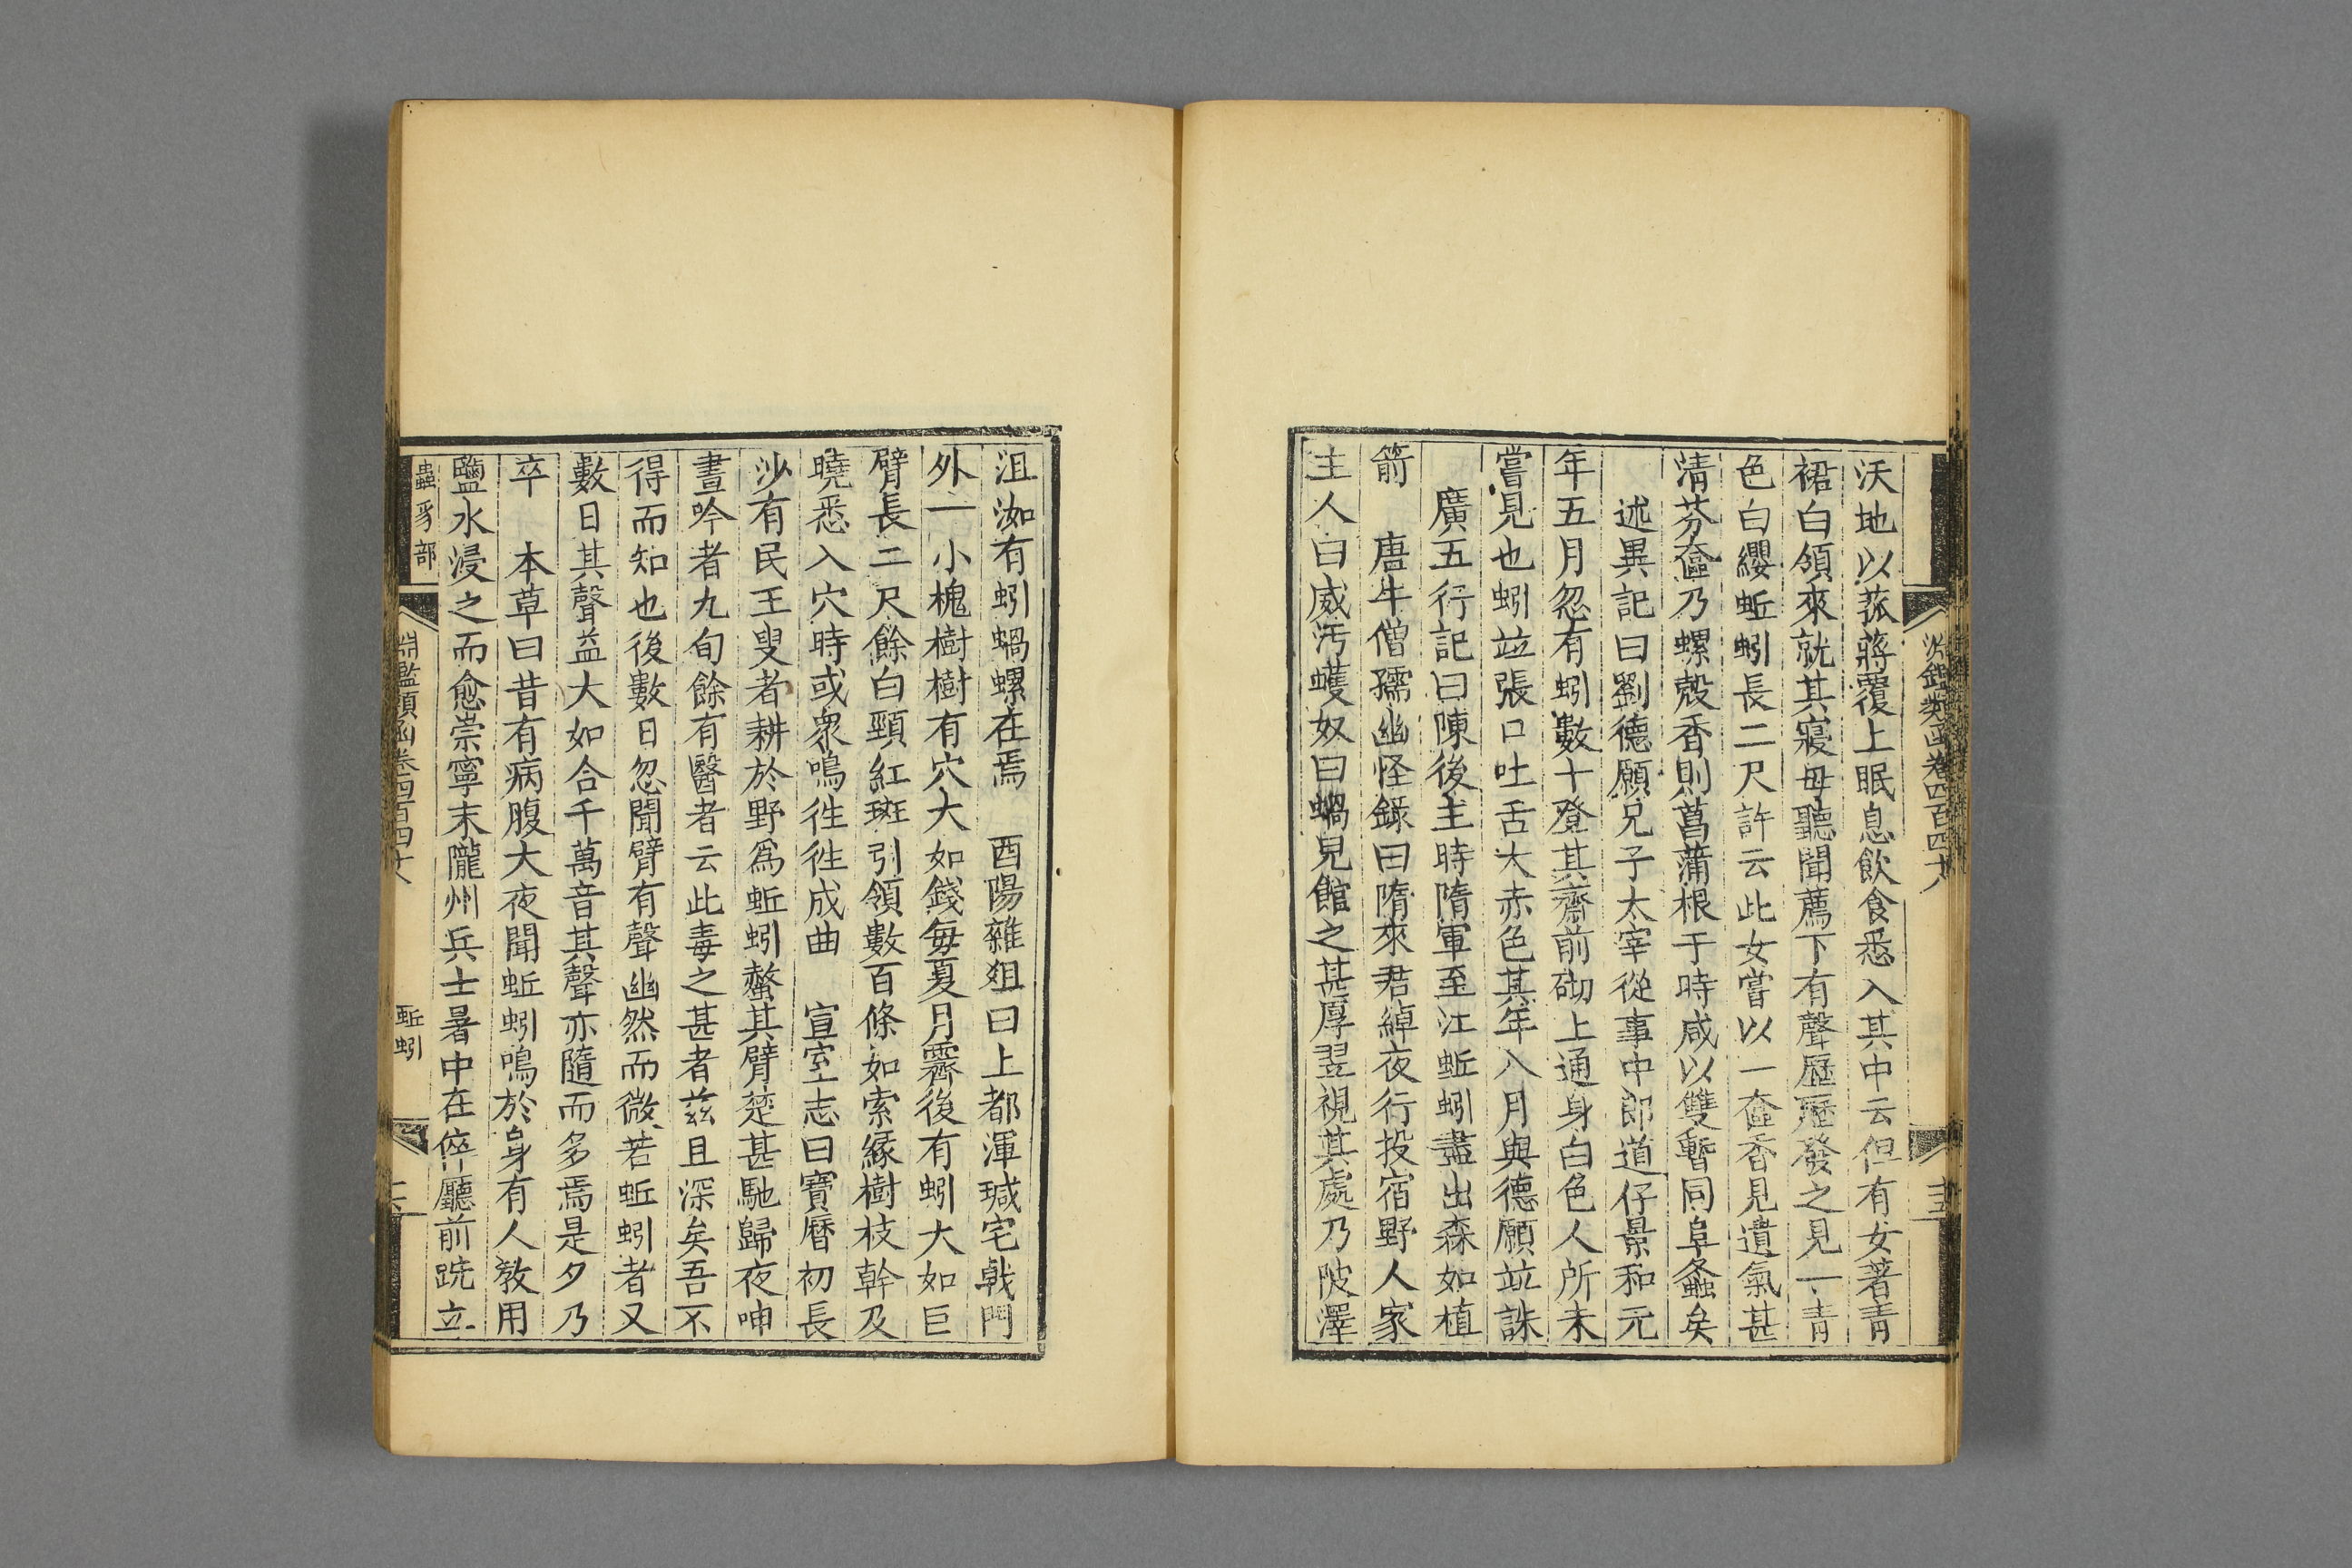 淵鑑類函卷四百四十八
十五
沃地以菰蔣覆上眠息飲食悉入其中云但有女著青
裙白領來就其寢母聽聞薦下有聲歷歷發之見一青
色白纓蚯蚓長二尺許云此女嘗以一奩香見遺氣甚
清芬奩乃螺殼香則菖蒲根于時咸以雙暫同阜螽矣
述異記曰劉德願兄子太宰從事中郎道仔景和元
年五月忽有蚓數十登其齋前砌上通身白色人所未
嘗見也蚓竝張口吐舌大赤色其年八月與德願竝誅
廣五行記曰陳後主時隋軍至江蚯蚓盡出森如植
箭　唐牛僧孺幽怪錄曰隋來君綽夜行投宿野人家
主人曰威汚蠖奴曰蝸兒館之甚厚翌視其處乃陂澤
沮洳有蚓蝸螺在焉　酉陽雜俎曰上都渾瑊宅戟門
外一小槐樹樹有穴大如錢每夏月霽後有蚓大如巨
臂長二尺餘白頸紅斑引領數百條如索緣樹枝幹及
曉悉入穴時或衆鳴徃徃成曲　宣室志曰寶曆初長
沙有民王叟者耕於野爲蚯蚓螫其臂楚甚馳歸夜呻
晝吟者九旬餘有醫者云此毒之甚者茲且深矣吾不
得而知也後數日忽聞臂有聲幽然而微若蚯蚓者又
數日其聲益大如合千萬音其聲亦隨而多焉是夕乃
卒　本草曰昔有病腹大夜聞蚯蚓鳴於身有人敎用
鹽水浸之而愈崇寧末隴州兵士暑中在倅廳前跣立
蟲豸部
淵鑑類函卷四百四十八
蚯蚓
十六